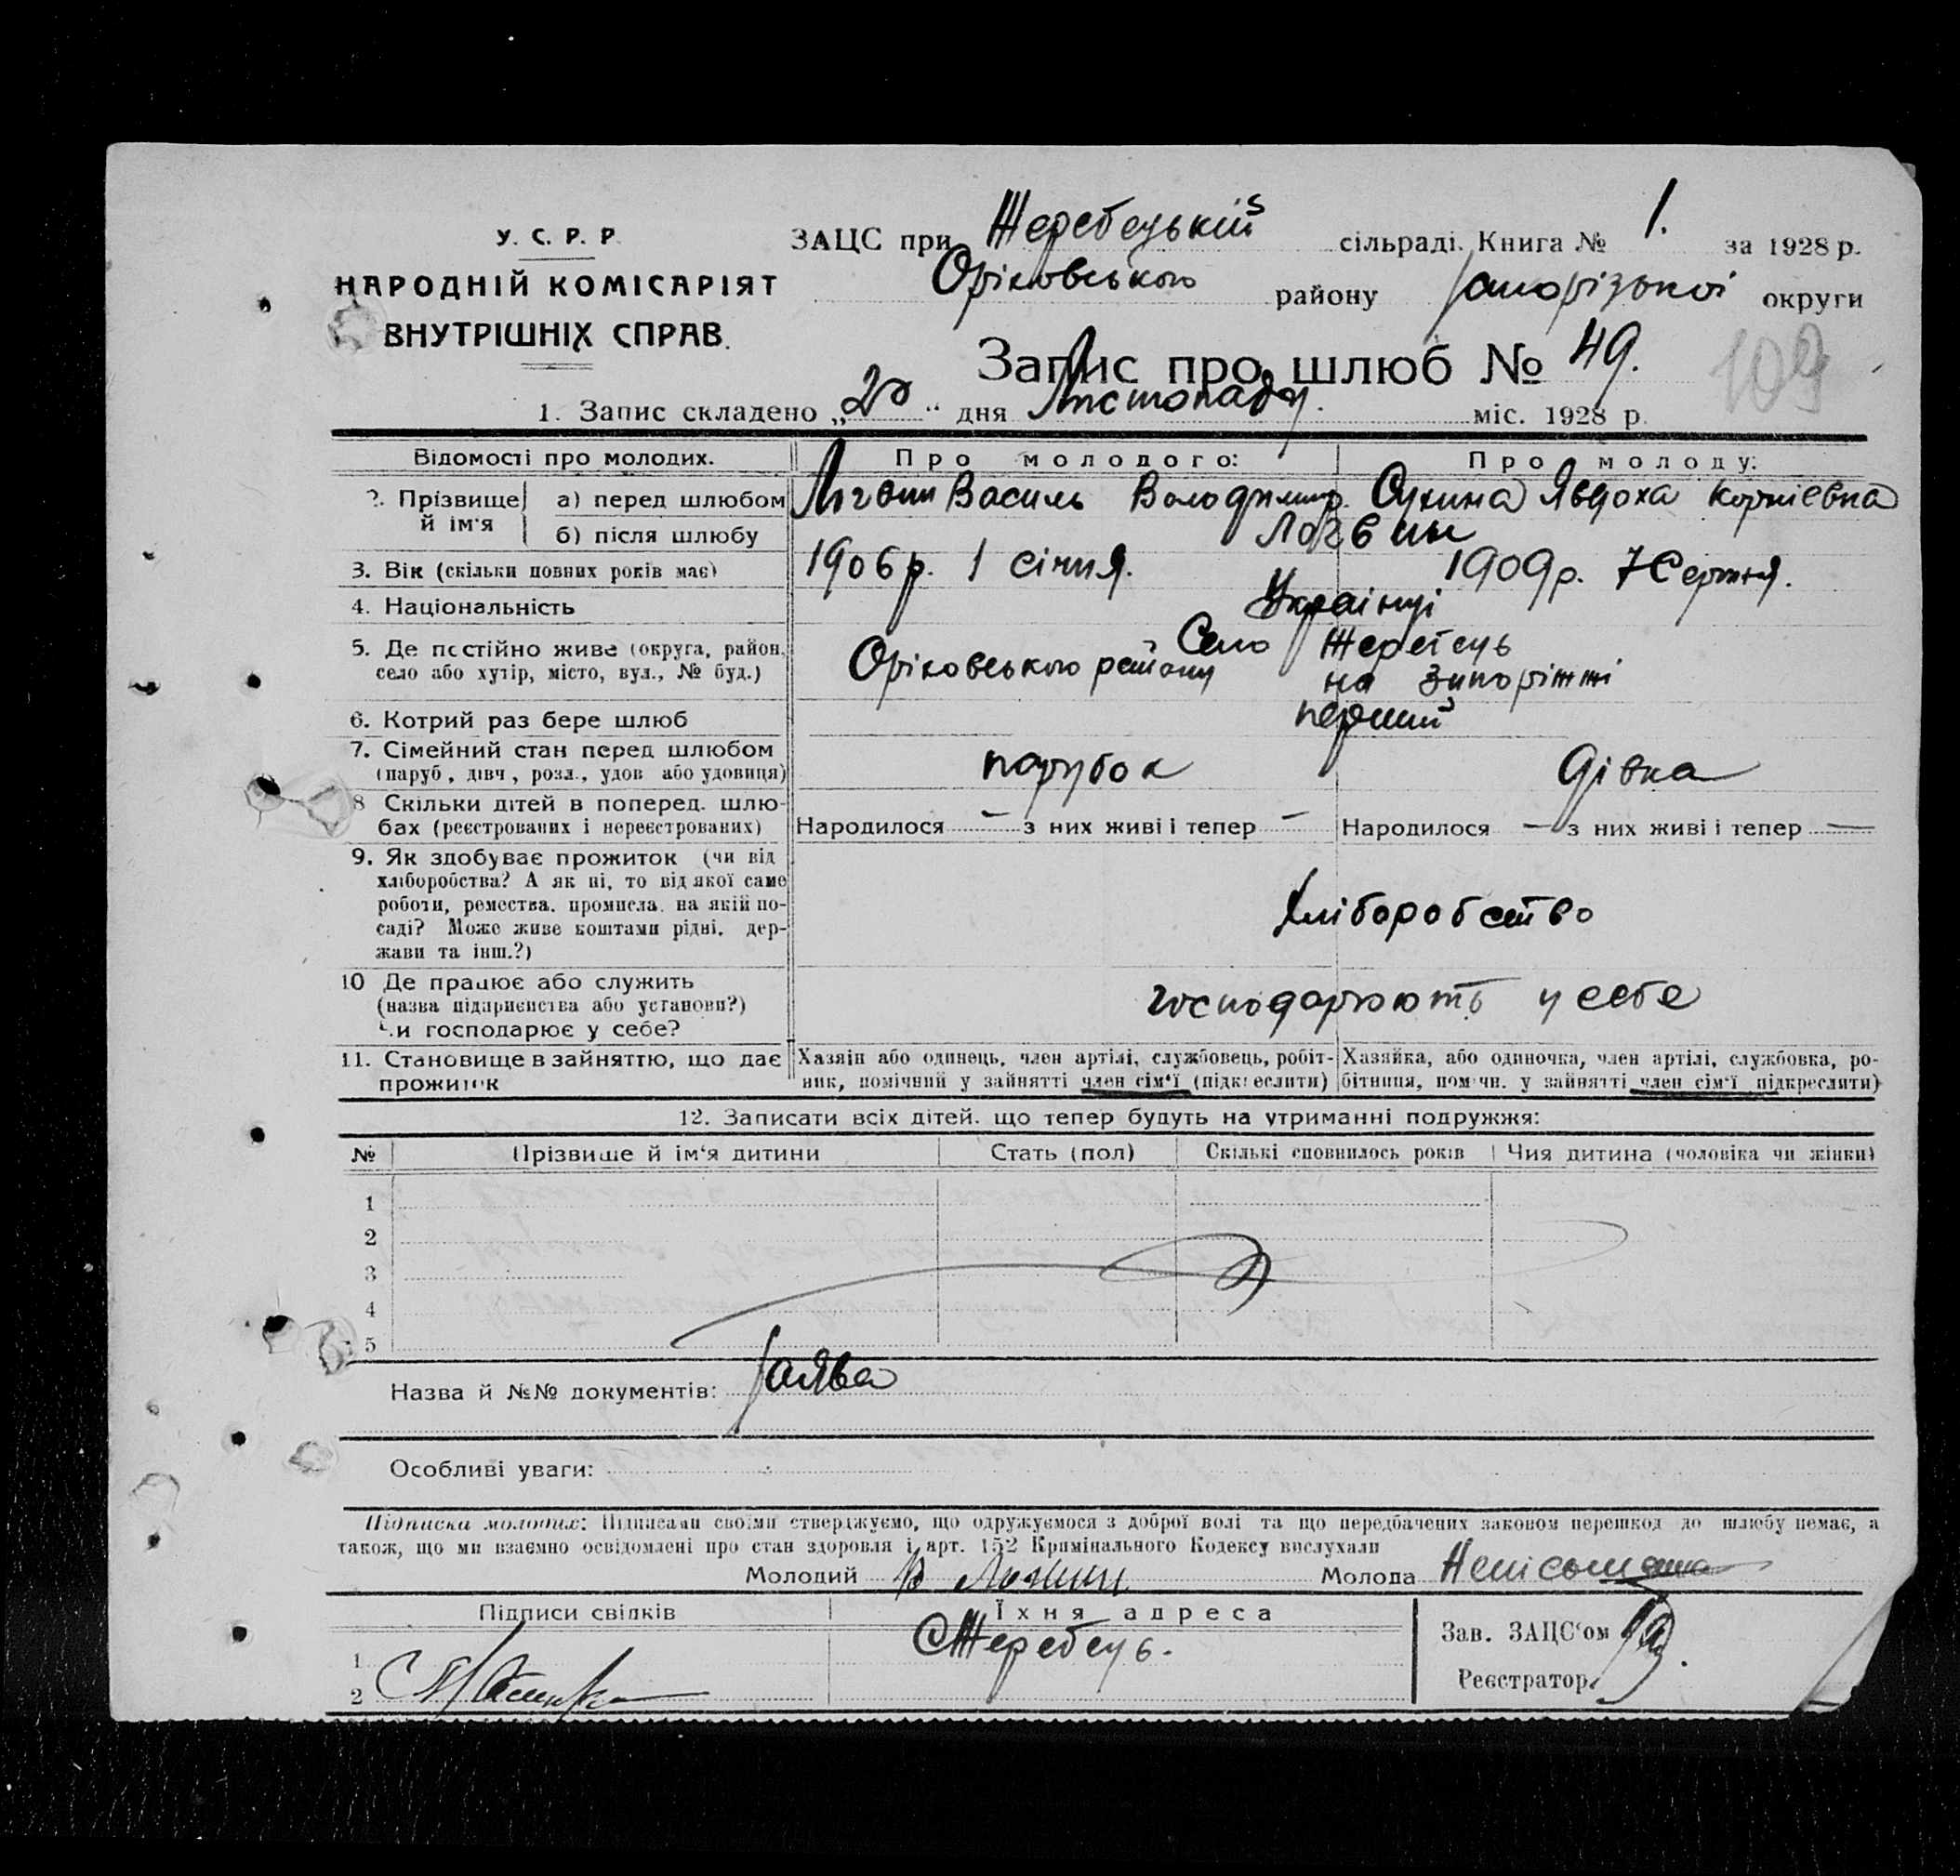 У. С. Р. Р.
НАРОДНІЙ КОМІСАРІЯТ
ВНУТРІШНІХ СПРАВ.
ЗАЦС при Жеребецькій сільраді. Книга № 1. за 1928 р.
Оріховського району Запорізької округи
Запис про шлюб № 49.
109
1. Запис складено „20“ дня Листопаду. міс. 1928 р.
Відомості про молодих. Про молодого: Про молоду:
2. Прізвище й ім'я а) перед шлюбом Логвин Василь Володимир. Явдоха Корніевна
б) після шлюбу Логвин
3. Вік (скільки повних років має) 1906 р. 1 січня. 1909 р. 7 Серпня.
4. Національність Українці
5. Де постійно живе (округа, район, село або хутір, місто, вул., № буд.) Село Жеребець
Оріховського району на Запоріжжі
6. Котрий раз бере шлюб перший
7. Сімейний стан перед шлюбом
(паруб, дівч, розл., удов або удовиця) парубок дівка
8 Скільки дітей в поперед. шлюбах (реєстрованих і нереєстрованих) Народилося — з них живі і тепер — Народилося — з них живі і тепер —
9. Як здобуває прожиток (чи від
хліборобства? А як ні, то від якої саме
роботи, ремества, промисла, на якій по-
саді? Може живе коштами рідні, дер-
жави та інш.?) Хліборобство
10 Де працює або служить
(назва підприємства або установи?)
чи господарює у себе? господарюють у себе
11. Становище в зайняттю, що дає прожиток
Хазяін або одинець, член артілі, службовець, робіт-
ник, помічний у зайнятті член сім'ї (підкреслити)
Хазяйка, або одиночка, член артілі, службовка, ро-
бітниця, помічн. у зайнятті член сім'ї підкреслити)
12. Записати всіх дітей. що тепер будуть на утриманні подружжя:
№ Прізвише й ім'я дитини Стать (пол) Скількі сповнилось років Чия дитина (чоловіка чи жінки)
1
2
3
4
5
Назва й №№ документів: Заява
Особливі уваги:
Підписка молодих: Підписами своїми стверджуємо, що одружуємося з доброї волі та що передбачених законом перешкод до шлюбу немає, а
також, що ми взаємно освідомлені про стан здоровля і арт. 152 Кримінального Кодексу вислухали
Молодий В Логвин Молода Неписьменна
Підписи свідків Їхня адреса
С Жеребець.
1
2
Зав. ЗАЦС'ом
Реєстратор